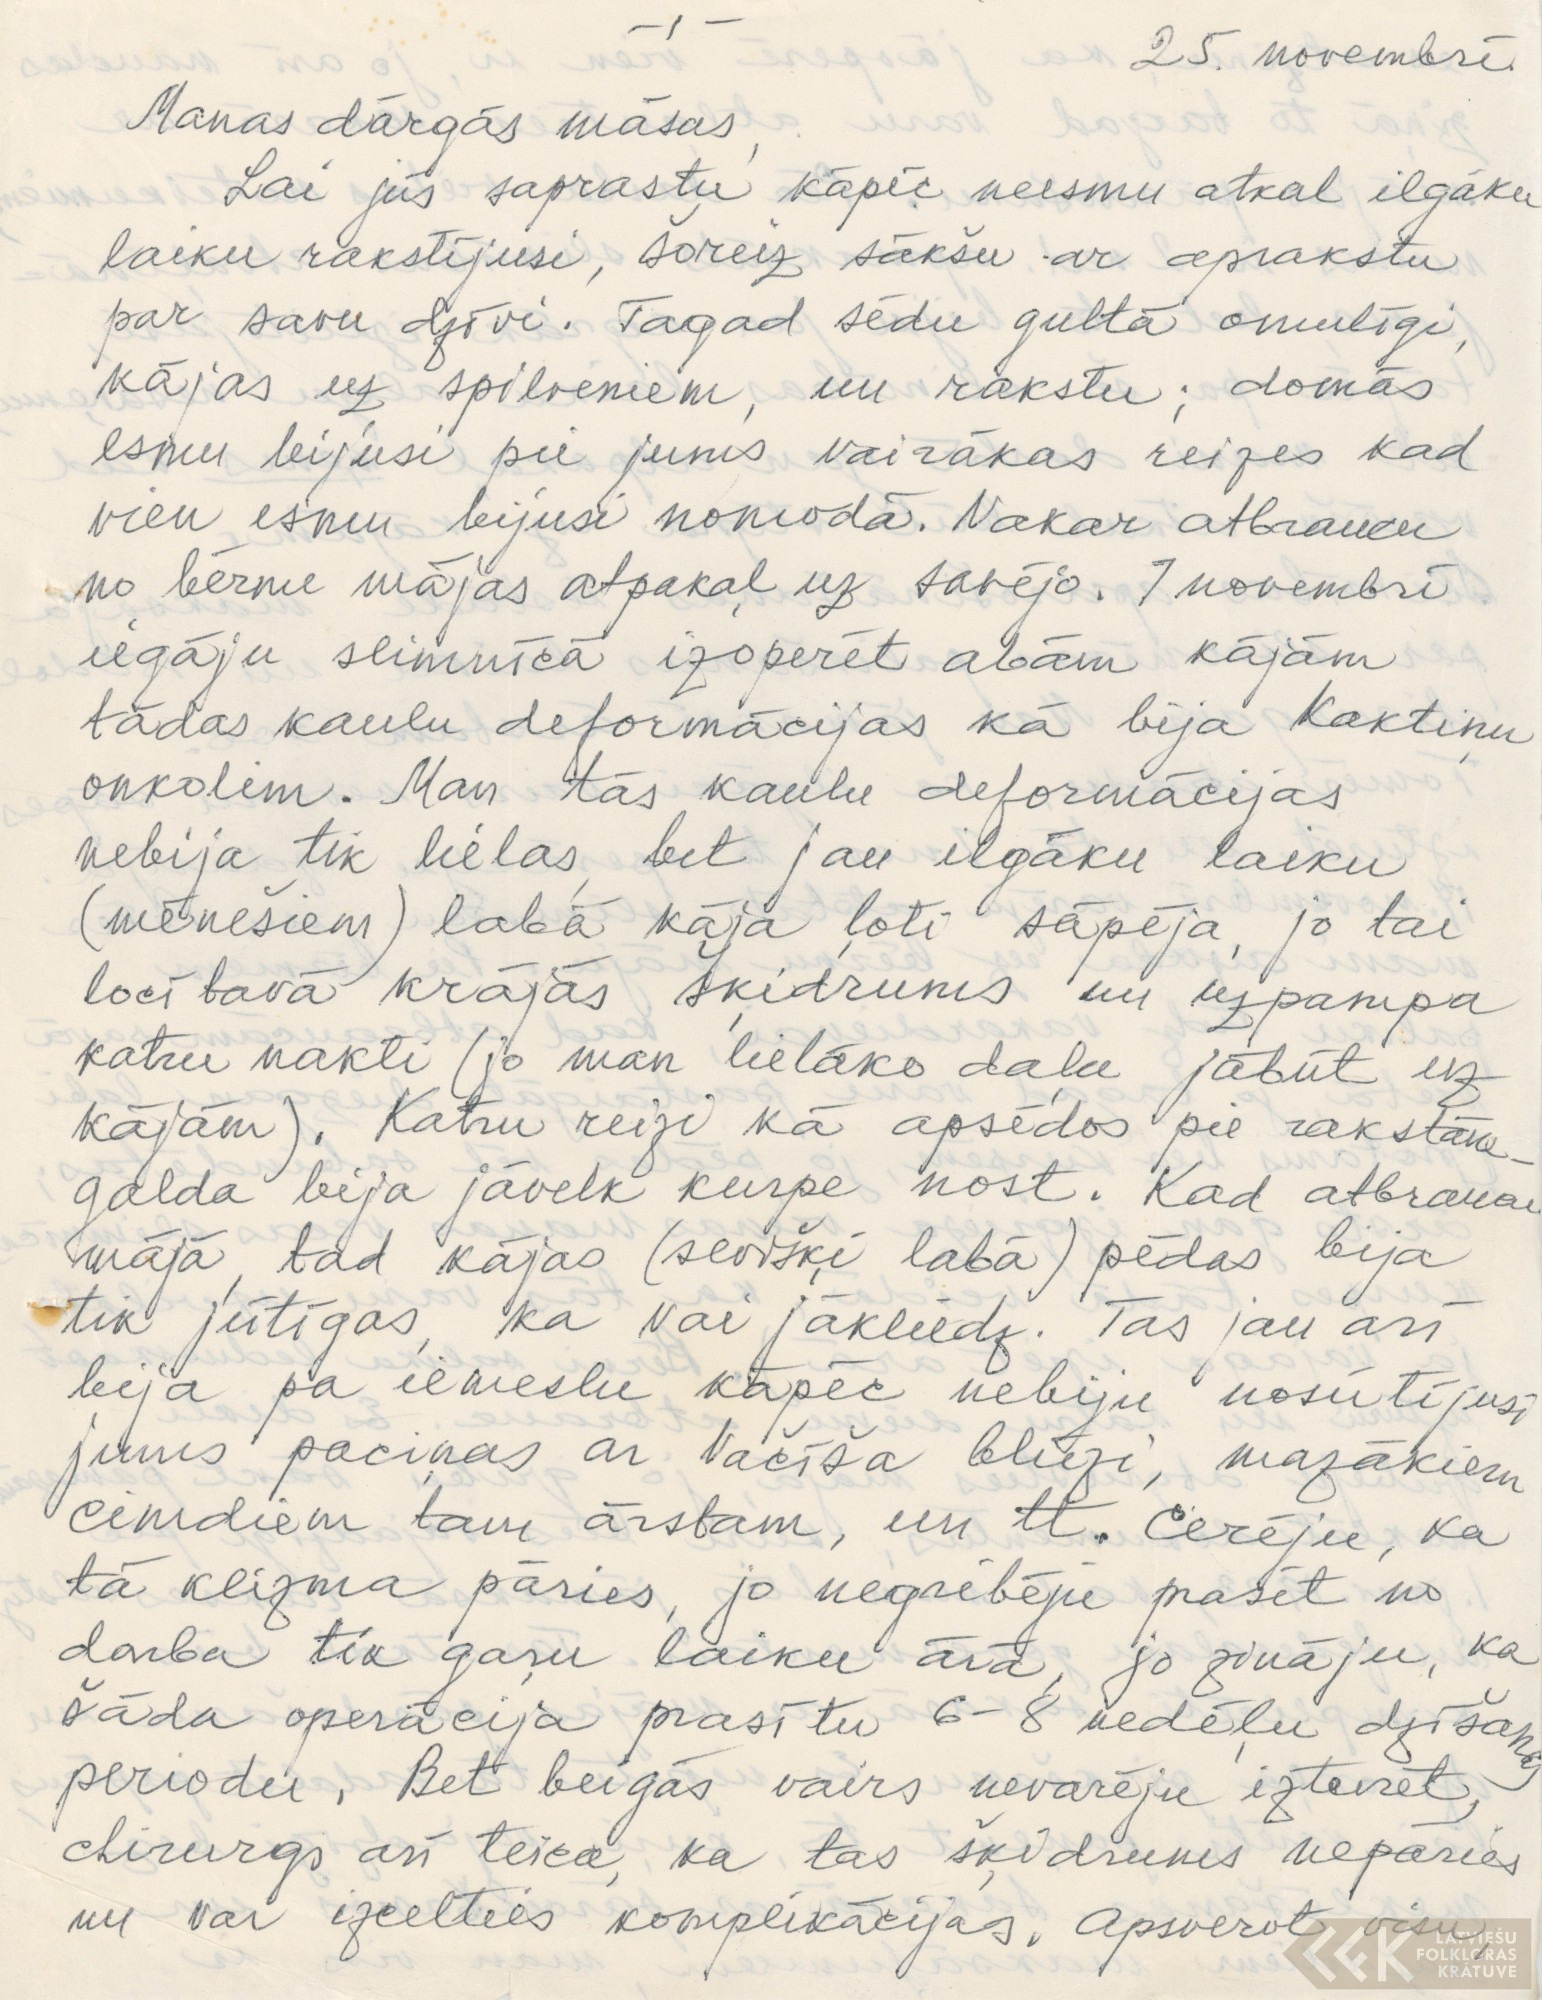 -1-
25. novembrī.
Manas dārgās māsas,
Lai jūs saprastu kāpēc neesmu atkal ilgāku
laiku rakstījusi, šoreiz sākšu ar aprakstu
par savu dzīvi. Tagad sēdu gultā omulīgi,
kājas uz spilveniem, un rakstu; domās
esmu bijusi pie jums vairākas reizes kad
vien esmu bijusi nomodā. Vakar atbraucu
no bērnu mājas atpakaļ uz savējo. 7 novembrī
iegāju slimnīcā izoperēt abām kājām
tādas kaulu deformācijas kā bija Kaktiņu
onkolim. Man tās kaulu deformācijas
nebija tik lielas, bet jau ilgāku laiku
(mēnešiem) labā kāja ļoti sāpēja, jo tai
locītavā krājās šķidrums un uzpampa
katru nakti (jo man lielāko daļu jābūt uz
kājām). Katru reizi kā apsēdos pie rakstām-
galda bija jāvelk kurpe nost. Kad atbraucu
mājā, tad kājas (sevišķi labā) pēdas bija
tik jūtīgas, ka vai jākliedz. Tas jau arī
bija pa iemeslu kāpēc nebiju nosūtījusi
jums paciņas ar Vačīša blūzi, mazākiem
cimdiem tam ārstam, un tt. Cerēju, ka
tā klizma pāries, jo negribēju prasīt no
darba tik gaŗu laiku ārā, jo zināju, ka
šāda operācija prasītu 6-8 nedēļu dzīšanas
periodu. Bet beigās vairs nevarēju izturēt,
chirurgs arī teica, ka tas šķidrums nepāries
un var izcelties komplikācijas. Apsverot visu,
LATVIEŠU
FOLKLORAS
KRĀTUVE